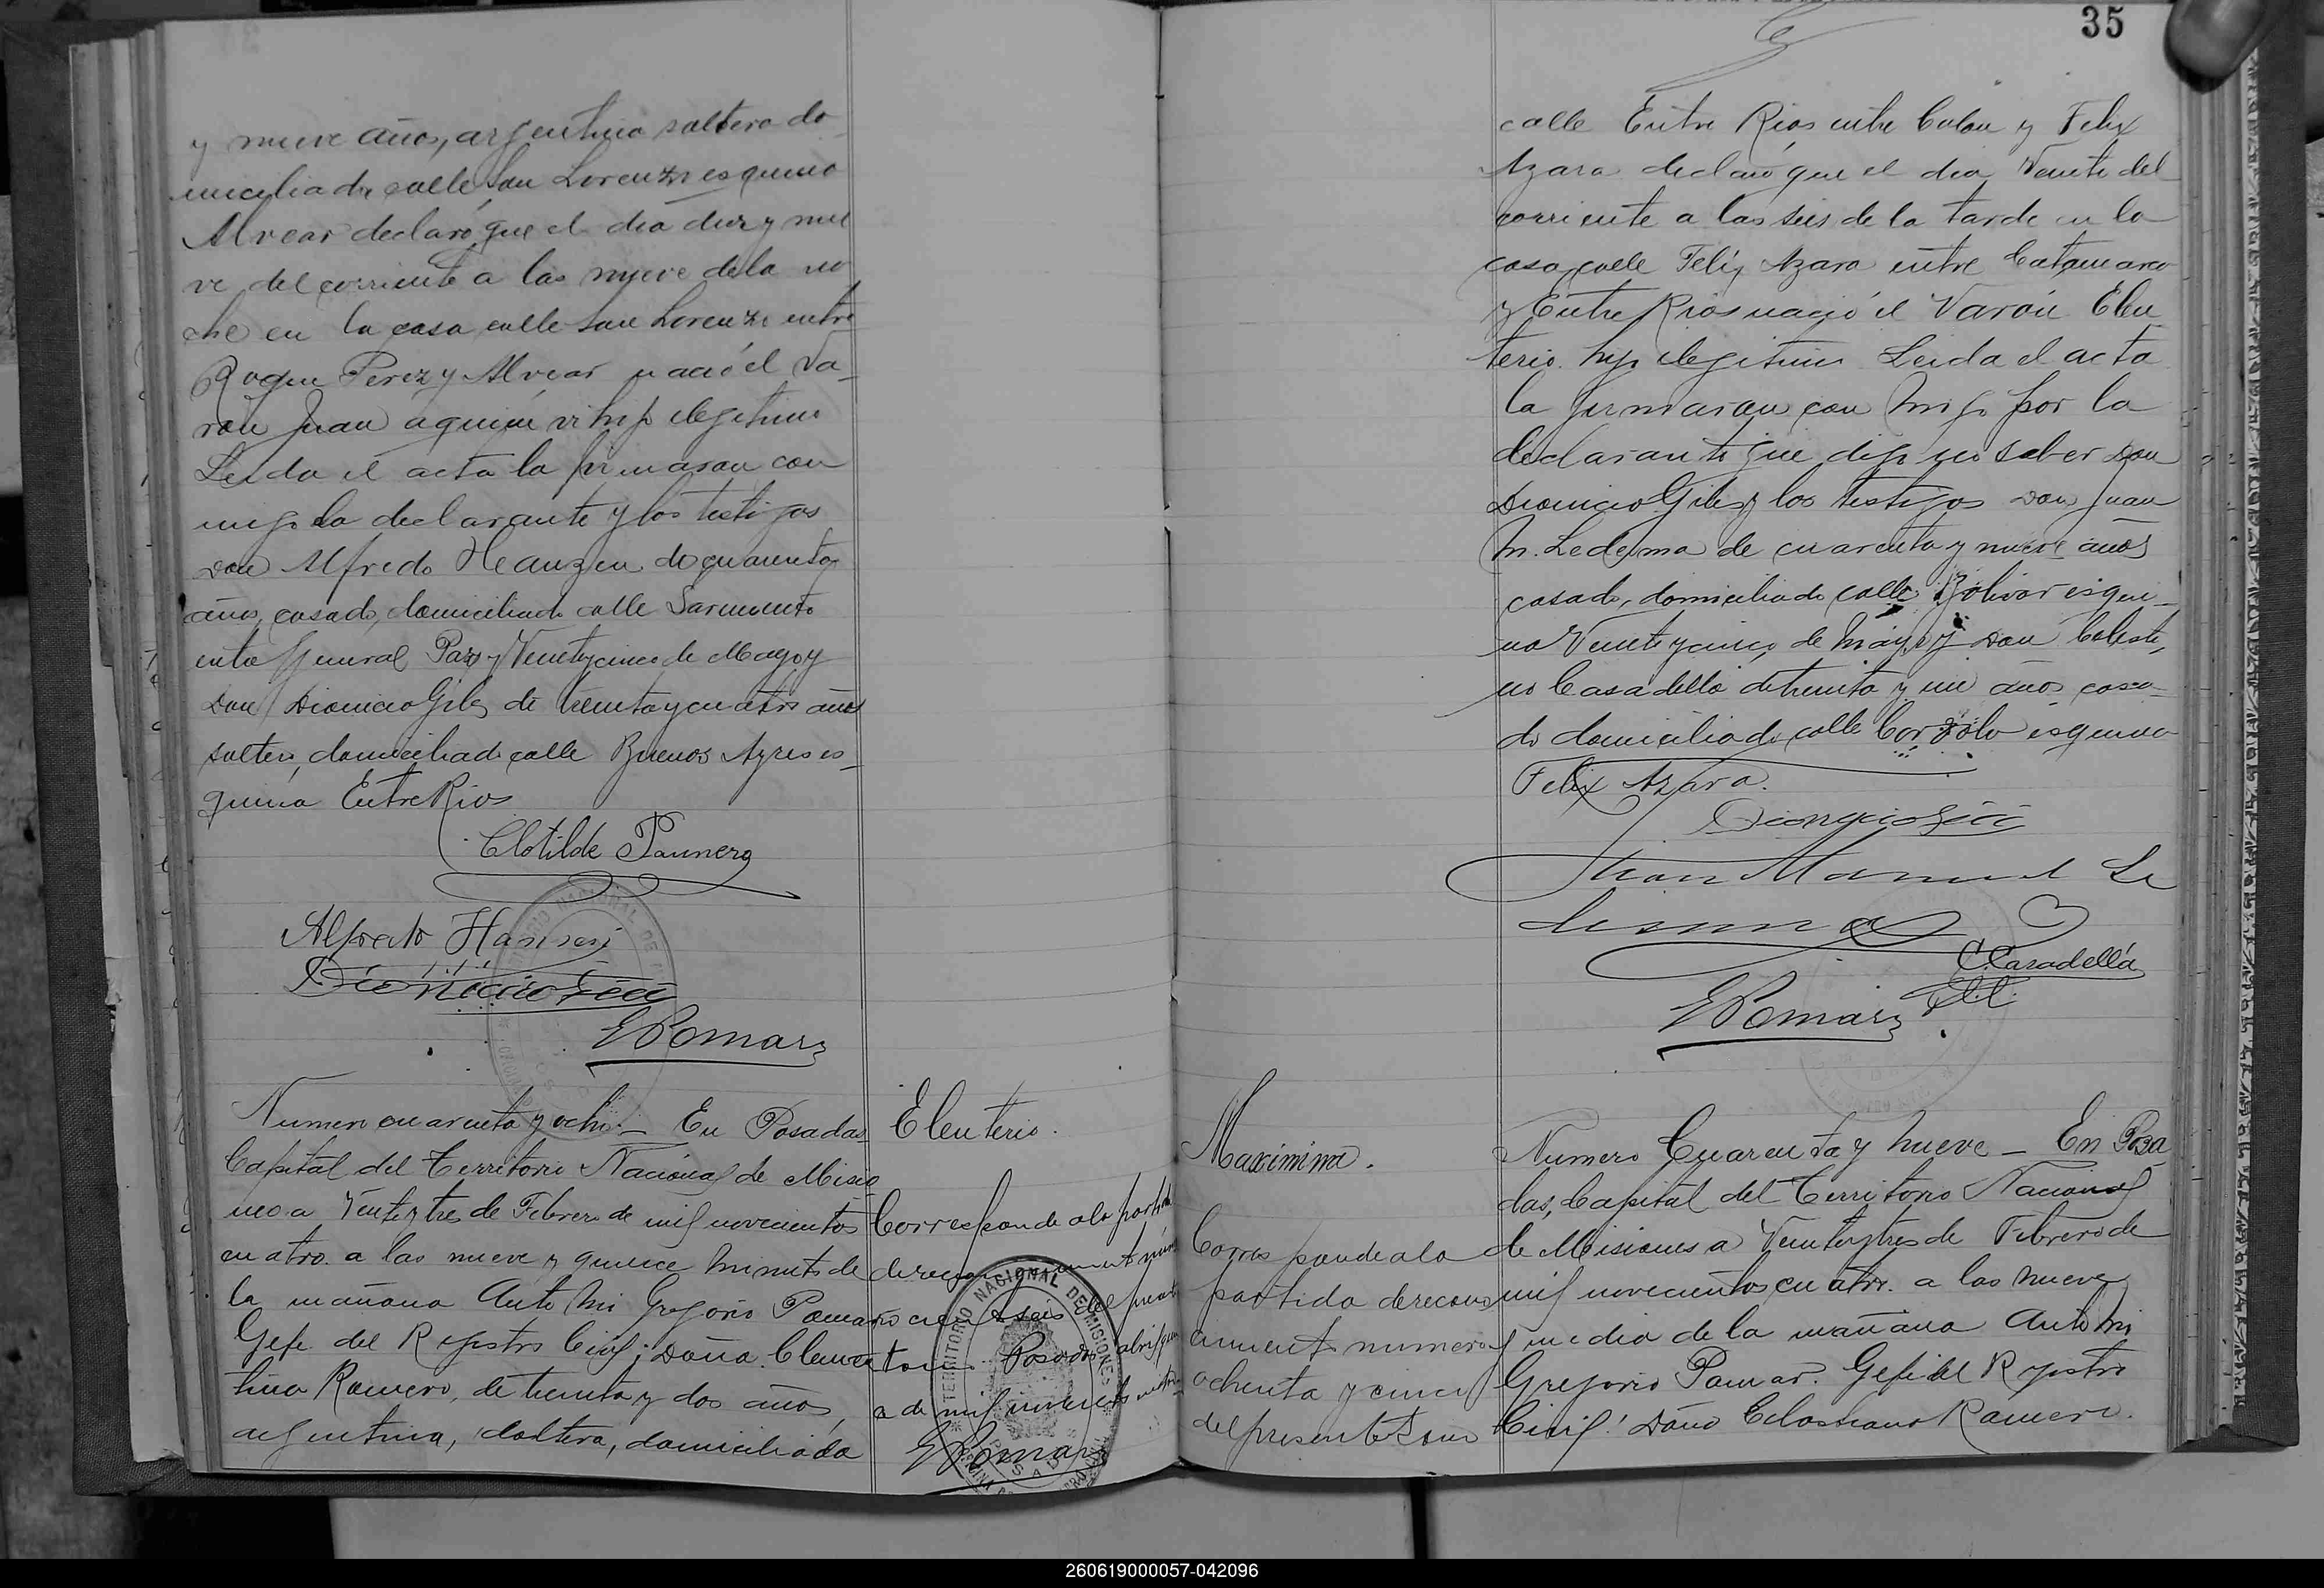 35
y nueve años, argentina soltera do
miciliada calle San Lorenzo esquina
Alvear declaró que el dia diez y nue
ve del corriente a las nueve de la no
che en la casa calle San Lorenzo entre
Roque Perez y Alvear nació el Va-
rón Juan a quien vi hijo ilegitimo
Leida el acta la firmaron con
migo la declarante y los testigos
Don Alfredo Hanzen de cuarenta
años, casado, domiciliado calle Sarmiento
entre General Paz y Veinteycinco de Mayo y
Don Dionicio Gil de treinta y cuatro años
soltero, domiciliado calle Buenos Ayres es-
quina Entre Rios
Clotilde
Alfredo
Dionicio Gil
GPomar
Numero cuarenta y ocho - En Posadas
Capital del Territorio Nacional de Misio
nes a Veinteytres de Febrero de mil novecientos
cuatro. a las nueve y quince minutos de
la mañana Ante mi Gregorio Pomar
Gefe del Registro Civil; Doña Clemen
tina Romero, de treinta y dos años,
argentina, soltera, domiciliada
Eleuterio.
Corresponde a la partida
de reconocimiento
ciento seis del presente
tomo. Posadas abril
a de mil novecientos cuatro
GPomar
TERRITORIO NACIONAL DE MISIONES
calle Entre Rios entre Colon y Felix
Azara declaró que el dia Veinte del
corriente a las seis de la tarde en la
casa calle Felix Azara entre Catamarca
y Entre Rios nació el Varón Eleu
terio hijo ilegitimo Leida el acta
la firmaron con migo por la
declarante que dijo no saber Don
Dionicio Gil y los testigos Don Juan
M. Ledesma de cuarenta y nueve años
casado, domiciliado calle Bolivar esqui-
na Veinte y cinco de Mayo y Don Celesti-
no Casadella de treinta y un años casa-
do domiciliado calle Cordoba esquina
Felix Azara.
Dionicio Gil
Juan Manuel Le
desma
C. Casadella
GPomar
Maximina.
Corresponde a la
partida de recono
cimiento numero
ochenta y cinco
del presente tomo
Numero Cuarenta y nueve - En Posa
das, Capital del Territorio Nacional
de Misiones a Veinteytres de Febrero de
mil novecientos cuatro. a las nueve
y media de la mañana Ante mi
Gregorio Pomar. Gefe del Registro
Civil! Doña Romero.
260619000057-042096